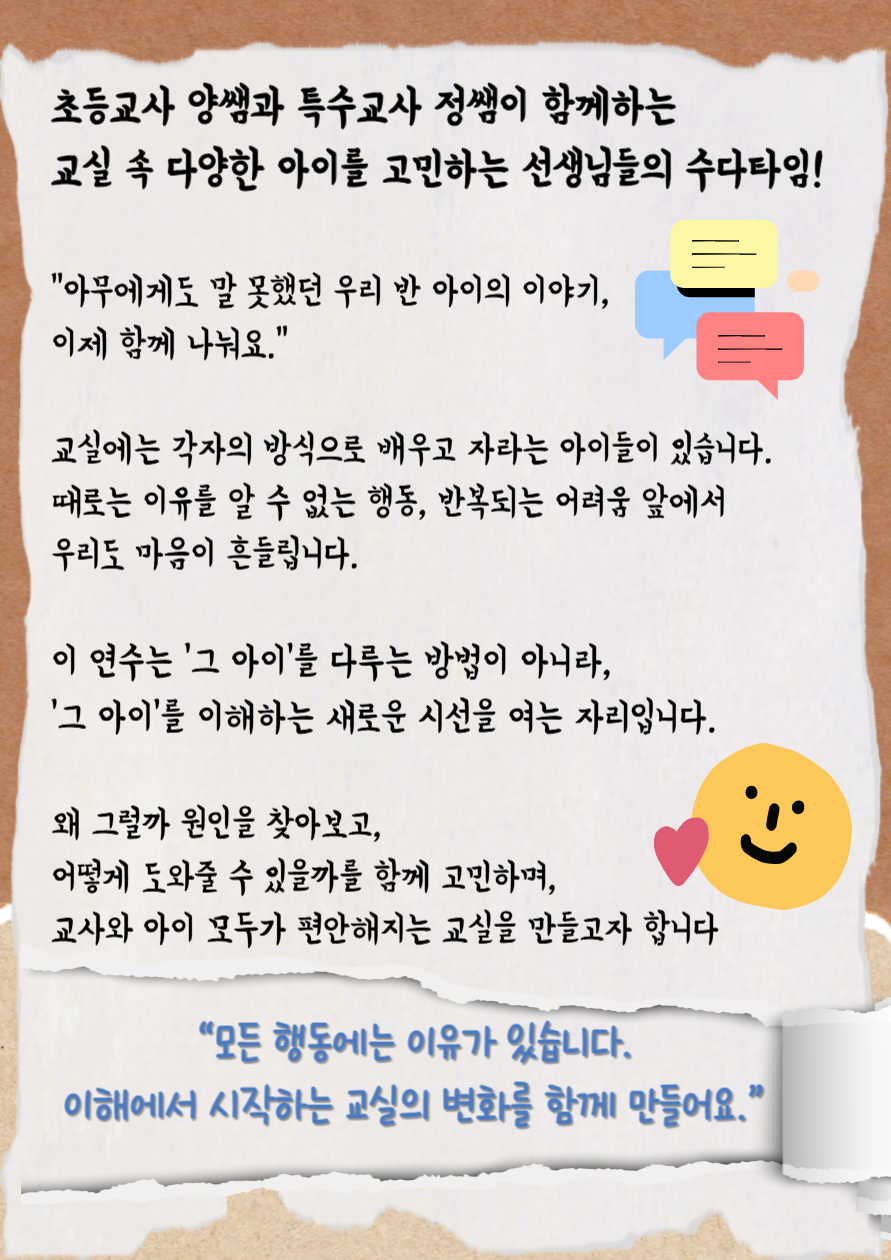 초등교사 양쌤과 특수교사 정쌤이 함께하는
교실 속 다양한 아이를 고민하는 선생님들의 수다타임!
"아무에게도 말 못했던 우리 반 아이의 이야기,
이제 함께 나눠요."
교실에는 각자의 방식으로 배우고 자라는 아이들이 있습니다.
때로는 이유를 알 수 없는 행동, 반복되는 어려움 앞에서
우리도 마음이 흔들립니다.
이 연수는 '그 아이'를 다루는 방법이 아니라,
'그 아이'를 이해하는 새로운 시선을 여는 자리입니다.
왜 그럴까 원인을 찾아보고,
어떻게 도와줄 수 있을까를 함께 고민하며,
교사와 아이 모두가 편안해지는 교실을 만들고자 합니다
“모든 행동에는 이유가 있습니다.
이해에서 시작하는 교실의 변화를 함께 만들어요.”